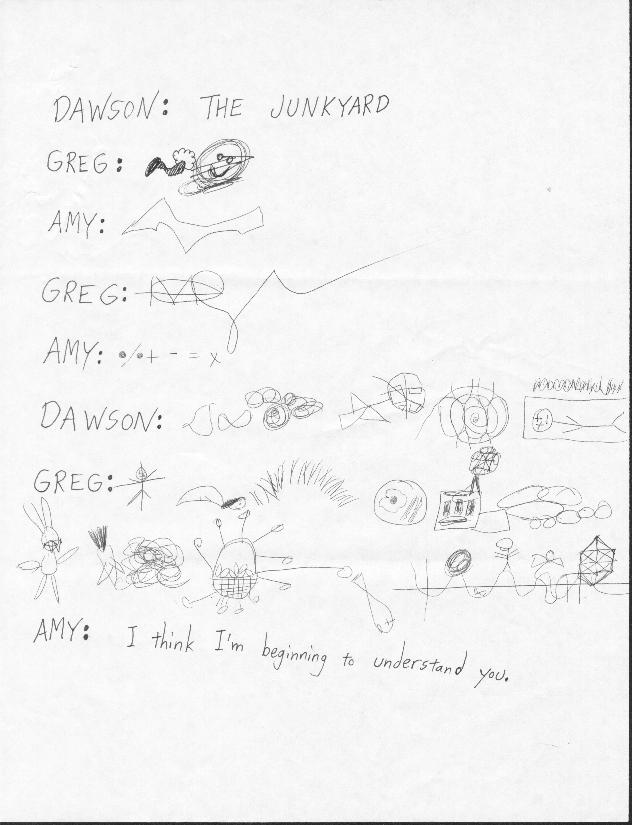 DAWSON: THE JUNKYARD
GREG:
AMY:
GREG:
AMY: % + - = x
DAWSON:
GREG:
AMY: I think I'm beginning to understand you.